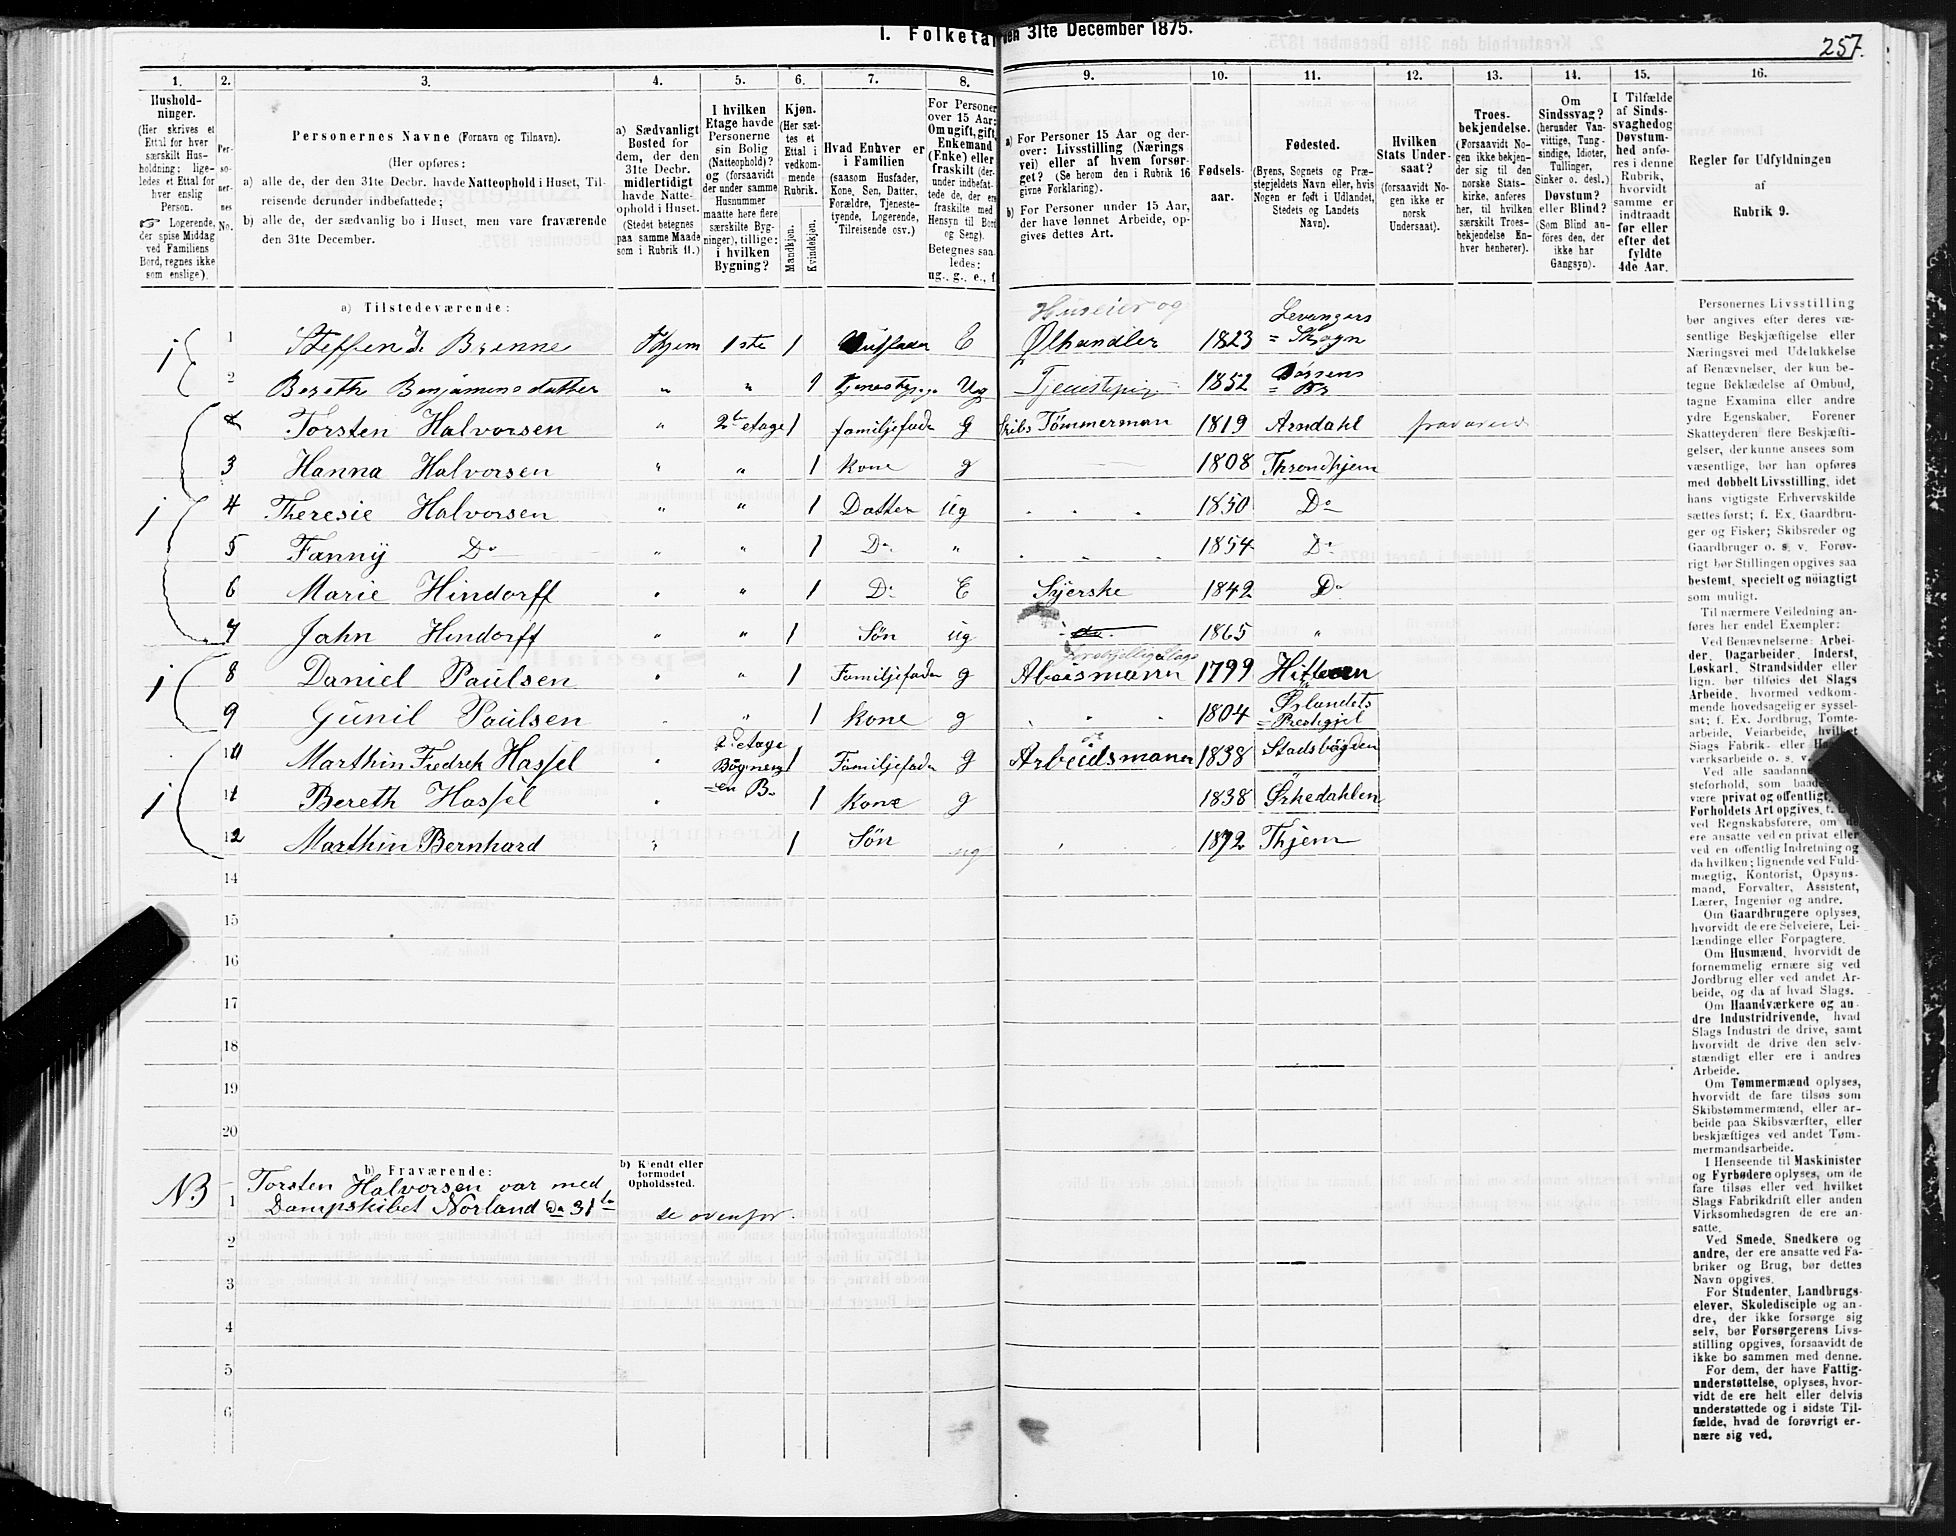 257.
I. Folketal den 31te December 1875.
1. 2. 3. 4. 5. 6. 7. 8. 9. 10. 11. 12. 13. 14. 15. 16.
Hushold-
ninger.
(Her skrives et
Ettal for hver
særskilt Hus-
holdning; lige-
ledes et Ettal for
hver enslig
Person.
Logerende,
der spise Middag
ved Familiens
Bord, regnes ikke
som enslige).
Per-
so-
ner-
nes
No.
Personernes Navne (Fornavn og Tilnavn).
(Her opføres:
a) alle de, der den 31te Decbr. havde Natteophold i Huset, Til-
reisende derunder indbefattede;
b) alle de, der sædvanlig bo i Huset, men vare fraværende
den 31te December.
a) Sædvanligt
Bosted for
dem, der den
31te Decbr.
midlertidigt
havde Natte-
ophold i Huset.
(Stedet betegnes
paa samme Maade
som i Rubrik 11.)
I hvilken
Etage havde
Personerne
sin Bolig
(Natteophold)?
og (forsaavidt
der under samme
Husnummer
maatte høre flere
særskilte Byg-
ninger), tillige:
i hvilken
Bygning?
Kjøn.
(Her sæt-
tes et
Ettal i
vedkom-
mende
Rubrik.
Mandkjøn.
Kvindekjøn.
Hvad Enhver er
i Familien
(saasom Husfader,
Kone, Søn, Datter,
Forældre, Tjeneste-
tyende, Logerende,
Tilreisende osv.)
For Personer
over 15 Aar:
Om ugift, gift,
Enkemand
(Enke) eller
fraskilt (der-
under indbefat-
tede de, der ere
fraskilte med
Hensyn til Bord
og Seng).
Betegnes saa-
ledes:
ug., g., e., f.
a) For Personer 15 Aar og der-
over: Livsstilling (Nærings-
vei) eller af hvem forsør-
get? (Se herom den i Rubrik 16
givne Forklaring).
b) For Personer under 15 Aar,
der have lønnet Arbeide, op-
gives dettes Art.
Fødsels-
aar.
Fødested.
(Byens, Sognets og Præ-
stegjeldets Navn eller, hvis
Nogen er født i Udlandet,
Stedets og Landets
Navn).
Hvilken
Stats Under-
saat?
(forsaavidt No-
gen ikke er
norsk
Undersaat).
Troes-
bekjendelse.
(Forsaavidt No-
gen ikke bekjen-
der sig til den
norske Stats-
kirke, anføres
her, til hvilken
særskilt Troes-
bekjendelse En-
hver henhører).
Om
Sindssvag?
(herunder Van-
vittige, Tung-
sindige, Idioter,
Tullinger,
Sinker o. desl.)
Døvstum?
eller Blind?
(Som Blind an-
føres den, der
ikke har
Gangsyn).
I Tilfælde
af Sinds-
svaghed og
Døvstum-
hed anfø-
res i denne
Rubrik,
hvorvidt
samme er
indtraadt
før eller
efter det
fyldte
4de Aar.
Regler for Udfyldningen
af
Rubrik 9.
a) Tilstedeværende:
Huseier og Levangers
1 1 Steffen J. Brenne Thjem 1ste 1 Husfader E Ølhandler 1823 = Skogn
2 Bereth Benjaminsdatter " " 1 Ug 1852 Børsens
Torsten Halvorsen " 2den etage 1 familjefader g Skibs Tømmermand 1819 Arndahl fraværende
3 Hanna Halvorsen " " 1 Kone g 1808 Throndhjem
1 4 Theresie Halvorsen " " 1 Datter ug 1850 Do
5 Fanny Do " " 1 Do " 1854 Do
6 Marie Hindorff " " 1 Do E Syerske 1842 Do
7 John Hindorff " " 1 Søn ug do. 1865 "
forskjellig Slags
1 8 Daniel Paulsen " " 1 Familjefader g 1799 Hitteren
9 Gunil Paulsen " " 1 Kone g 1804 Ørlandets
= Prestgjel
10 Marthin Fredrek Hassel 2d etage 1 Familjefader g Arbeidsmann 1838 Stadsbögden
1 11 Bereth Hassel " 1 Kone g 1838 Ørkedahlen
12 Marthin Bernhard " 1 Søn ug 1872 Thjem
14
15
16
17
18
19
20
b) Fraværende:
b) Kjendt eller
formodet
Opholdssted.
NB 1 Torsten Halvorsen var med
Dampskibet Norland da 31te se ovenfor.
2
3
4
5
6
Personernes Livsstilling
bør angives efter deres væ-
sentlige Beskjæftigelse eller
Næringsvei med Udelukkelse
af Benævnelser, der kun be-
tegne Beklædelse af Ombud,
tagne Examina eller andre
ydre Egenskaber. Forener
Skatteyderen flere Beskjæfti-
gelser, der kunne ansees som
væsentlige, bør han opføres
med dobbelt Livsstilling, idet
hans vigtigste Erhvervskilde
sættes først; f. Ex. Gaardbru-
ger og Fisker; Skibsreder og
Gaardbruger o. s. v. Forøv-
rigt bør Stillingen opgives saa
bestemt, specielt og nöiagtigt
som muligt.
Til nærmere Veiledning an-
føres her endel Exempler:
Ved Benævnelserne: Arbei-
der, Dagarbeider, Inderst,
Løskarl, Strandsidder eller
lign. bør tilføies det Slags
Arbeide, hvormed vedkom-
mende hovedsagelig er syssel-
sat; f. Ex. Jordbrug, Tomte-
arbeide, Veiarbeide, hvilket
Slags Fabrik- eller
værksarbeide o. s. v.
Ved alle saadanne
steforhold, som baade
være privat og offentligt,
Forholdets Art opgives, t. Ex.
ved Regnskabsførere, om de
ere ansatte ved en privat eller
ved en offentlig Indretning og
da hvilken; lignende ved Fuld-
mægtig, Kontorist, Opsyns-
mand, Forvalter, Assistent,
Lærer, Ingeniør og andre.
Om Gaardbrugere oplyses,
hvorvidt de ere Selveiere, Lei-
lændinge eller Forpagtere.
Om Husmænd, hvorvidt de
fornemmelig ernære sig ved
Jordbrug eller ved andet Ar-
beide, og da af hvad Slags.
Om Haandværkere og an-
dre Industridrivende, hvad
Slags Industri de drive, samt
hvorvidt de drive den selv-
stændigt eller ere i andres
Arbeide.
Om Tømmermænd oplyses,
hvorvidt de fare tilsøs som
Skibstømmermænd, eller ar-
beide paa Skibsværfter, eller
beskjæftiges ved andet Tøm-
mermandsarbeide.
I Henseende til Maskinister
og Fyrbødere oplyses, om de
fare tilsøs eller ved hvilket
Slags Fabrikdrift eller anden
Virksomhedsgren de ere an-
satte.
Ved Smede, Snedkere og
andre, der ere ansatte ved Fa-
briker og Brug, bør dettes
Navn opgives.
For Studenter, Landbrugs-
elever, Skoledisciple og an-
dre, der ikke forsørge sig
selv, bør Forsørgerens Livs-
stilling opgives, forsaavidt de
ikke bo sammen med denne.
For dem, der have Fattig-
understøttelse, oplyses, hvor-
vidt de ere helt eller delvis
understøttede og i sidste Til-
fælde, hvad de forøvrigt er-
nære sig ved.